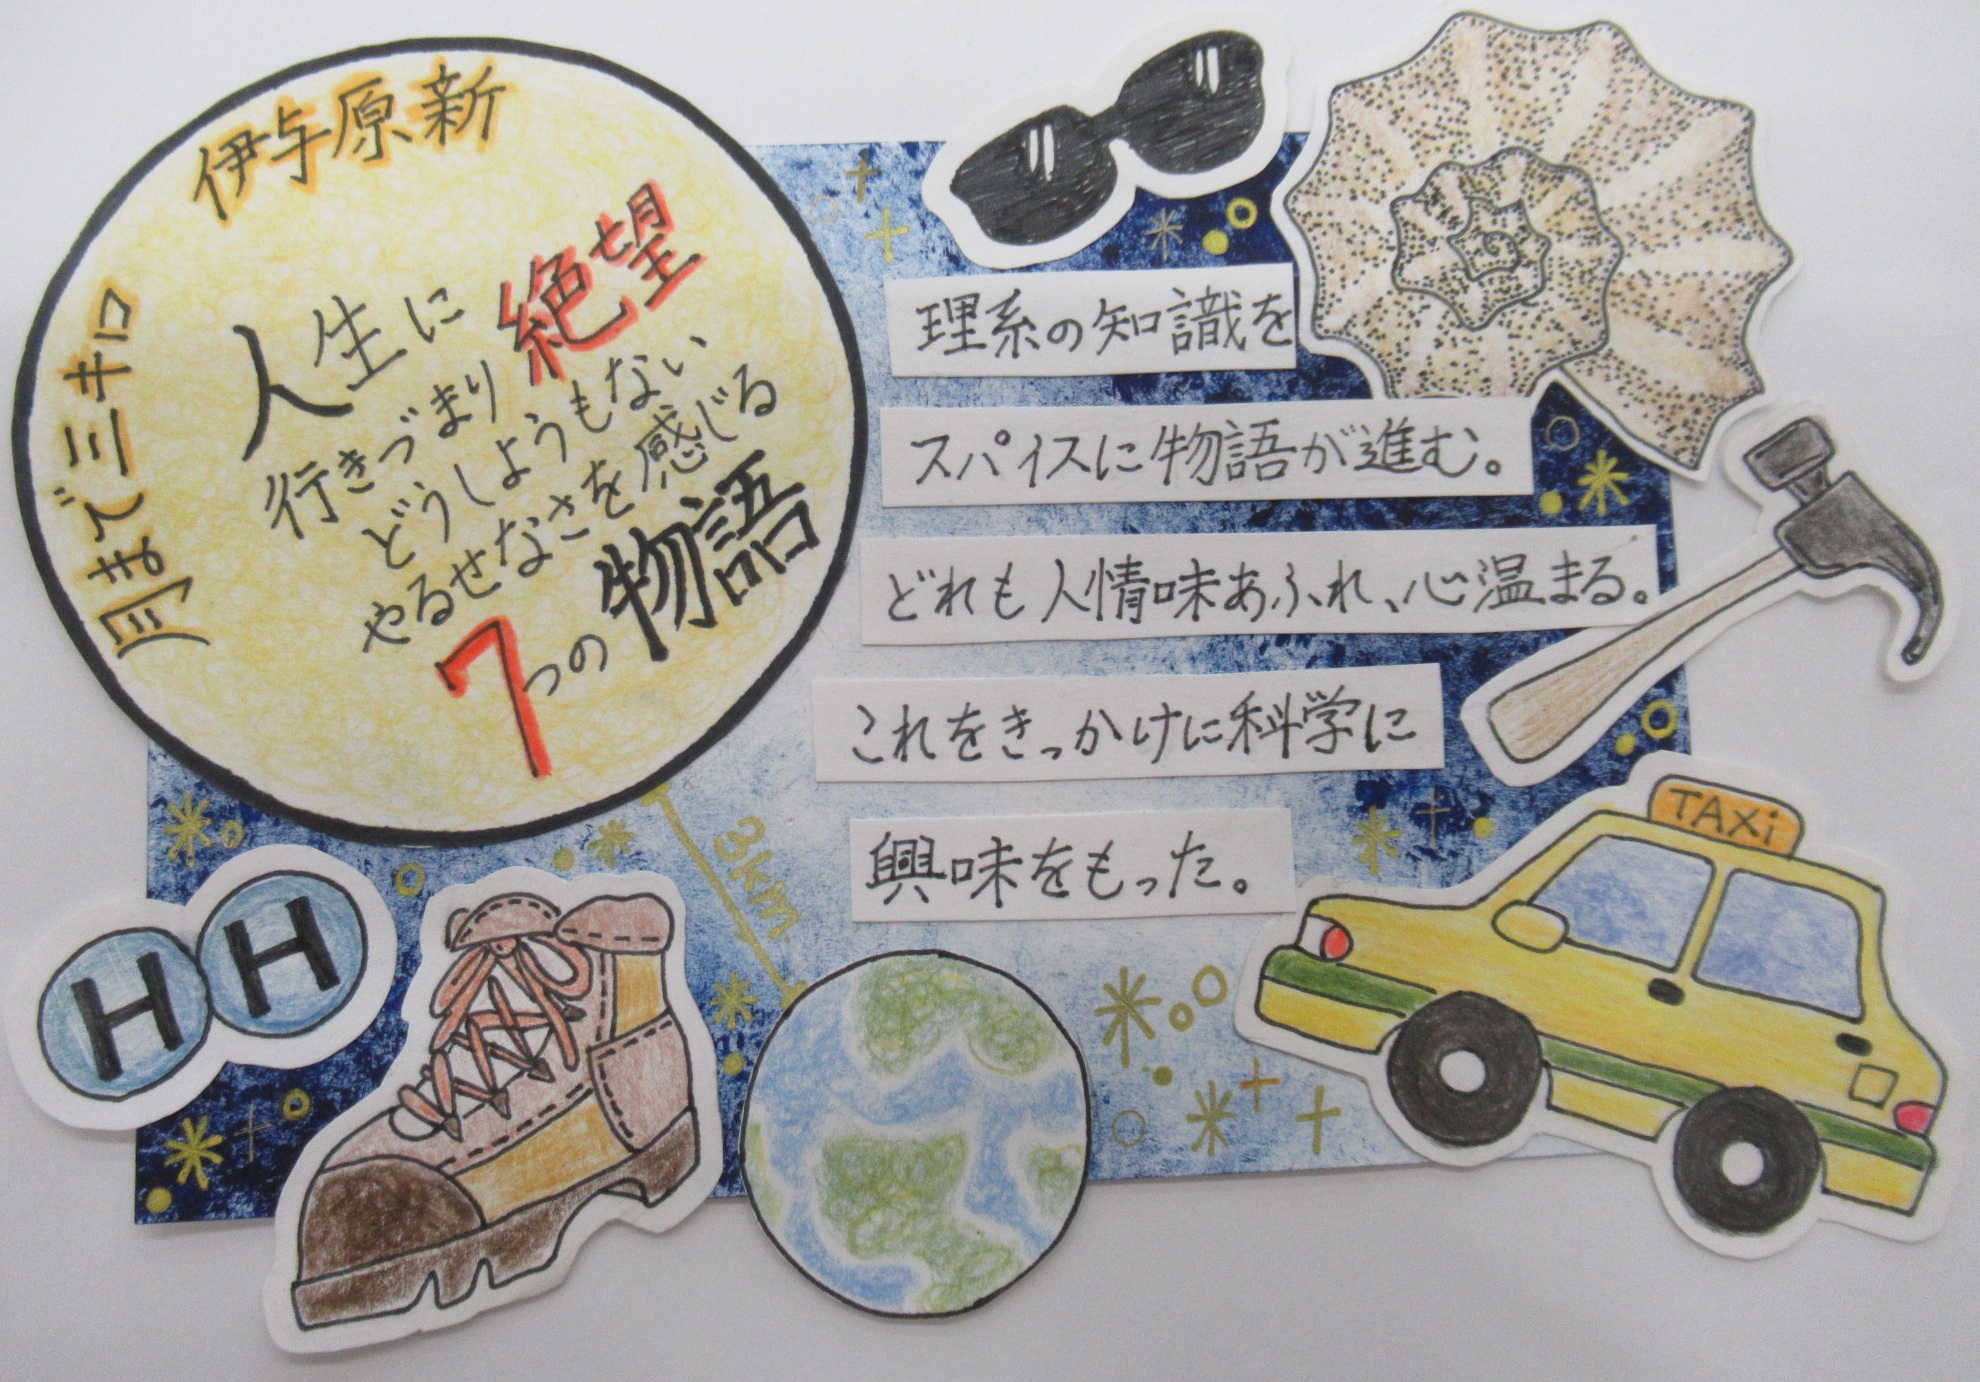 伊与原新
月まで三キロ
人生に絶望
行きづまり
どうしようもない
やるせなさを感じる
7つの物語
理系の知識を
スパイスに物語が進む。
どれも人情味あふれ、心温まる。
これをきっかけに科学に
興味をもった。
3km
TAXi
H H